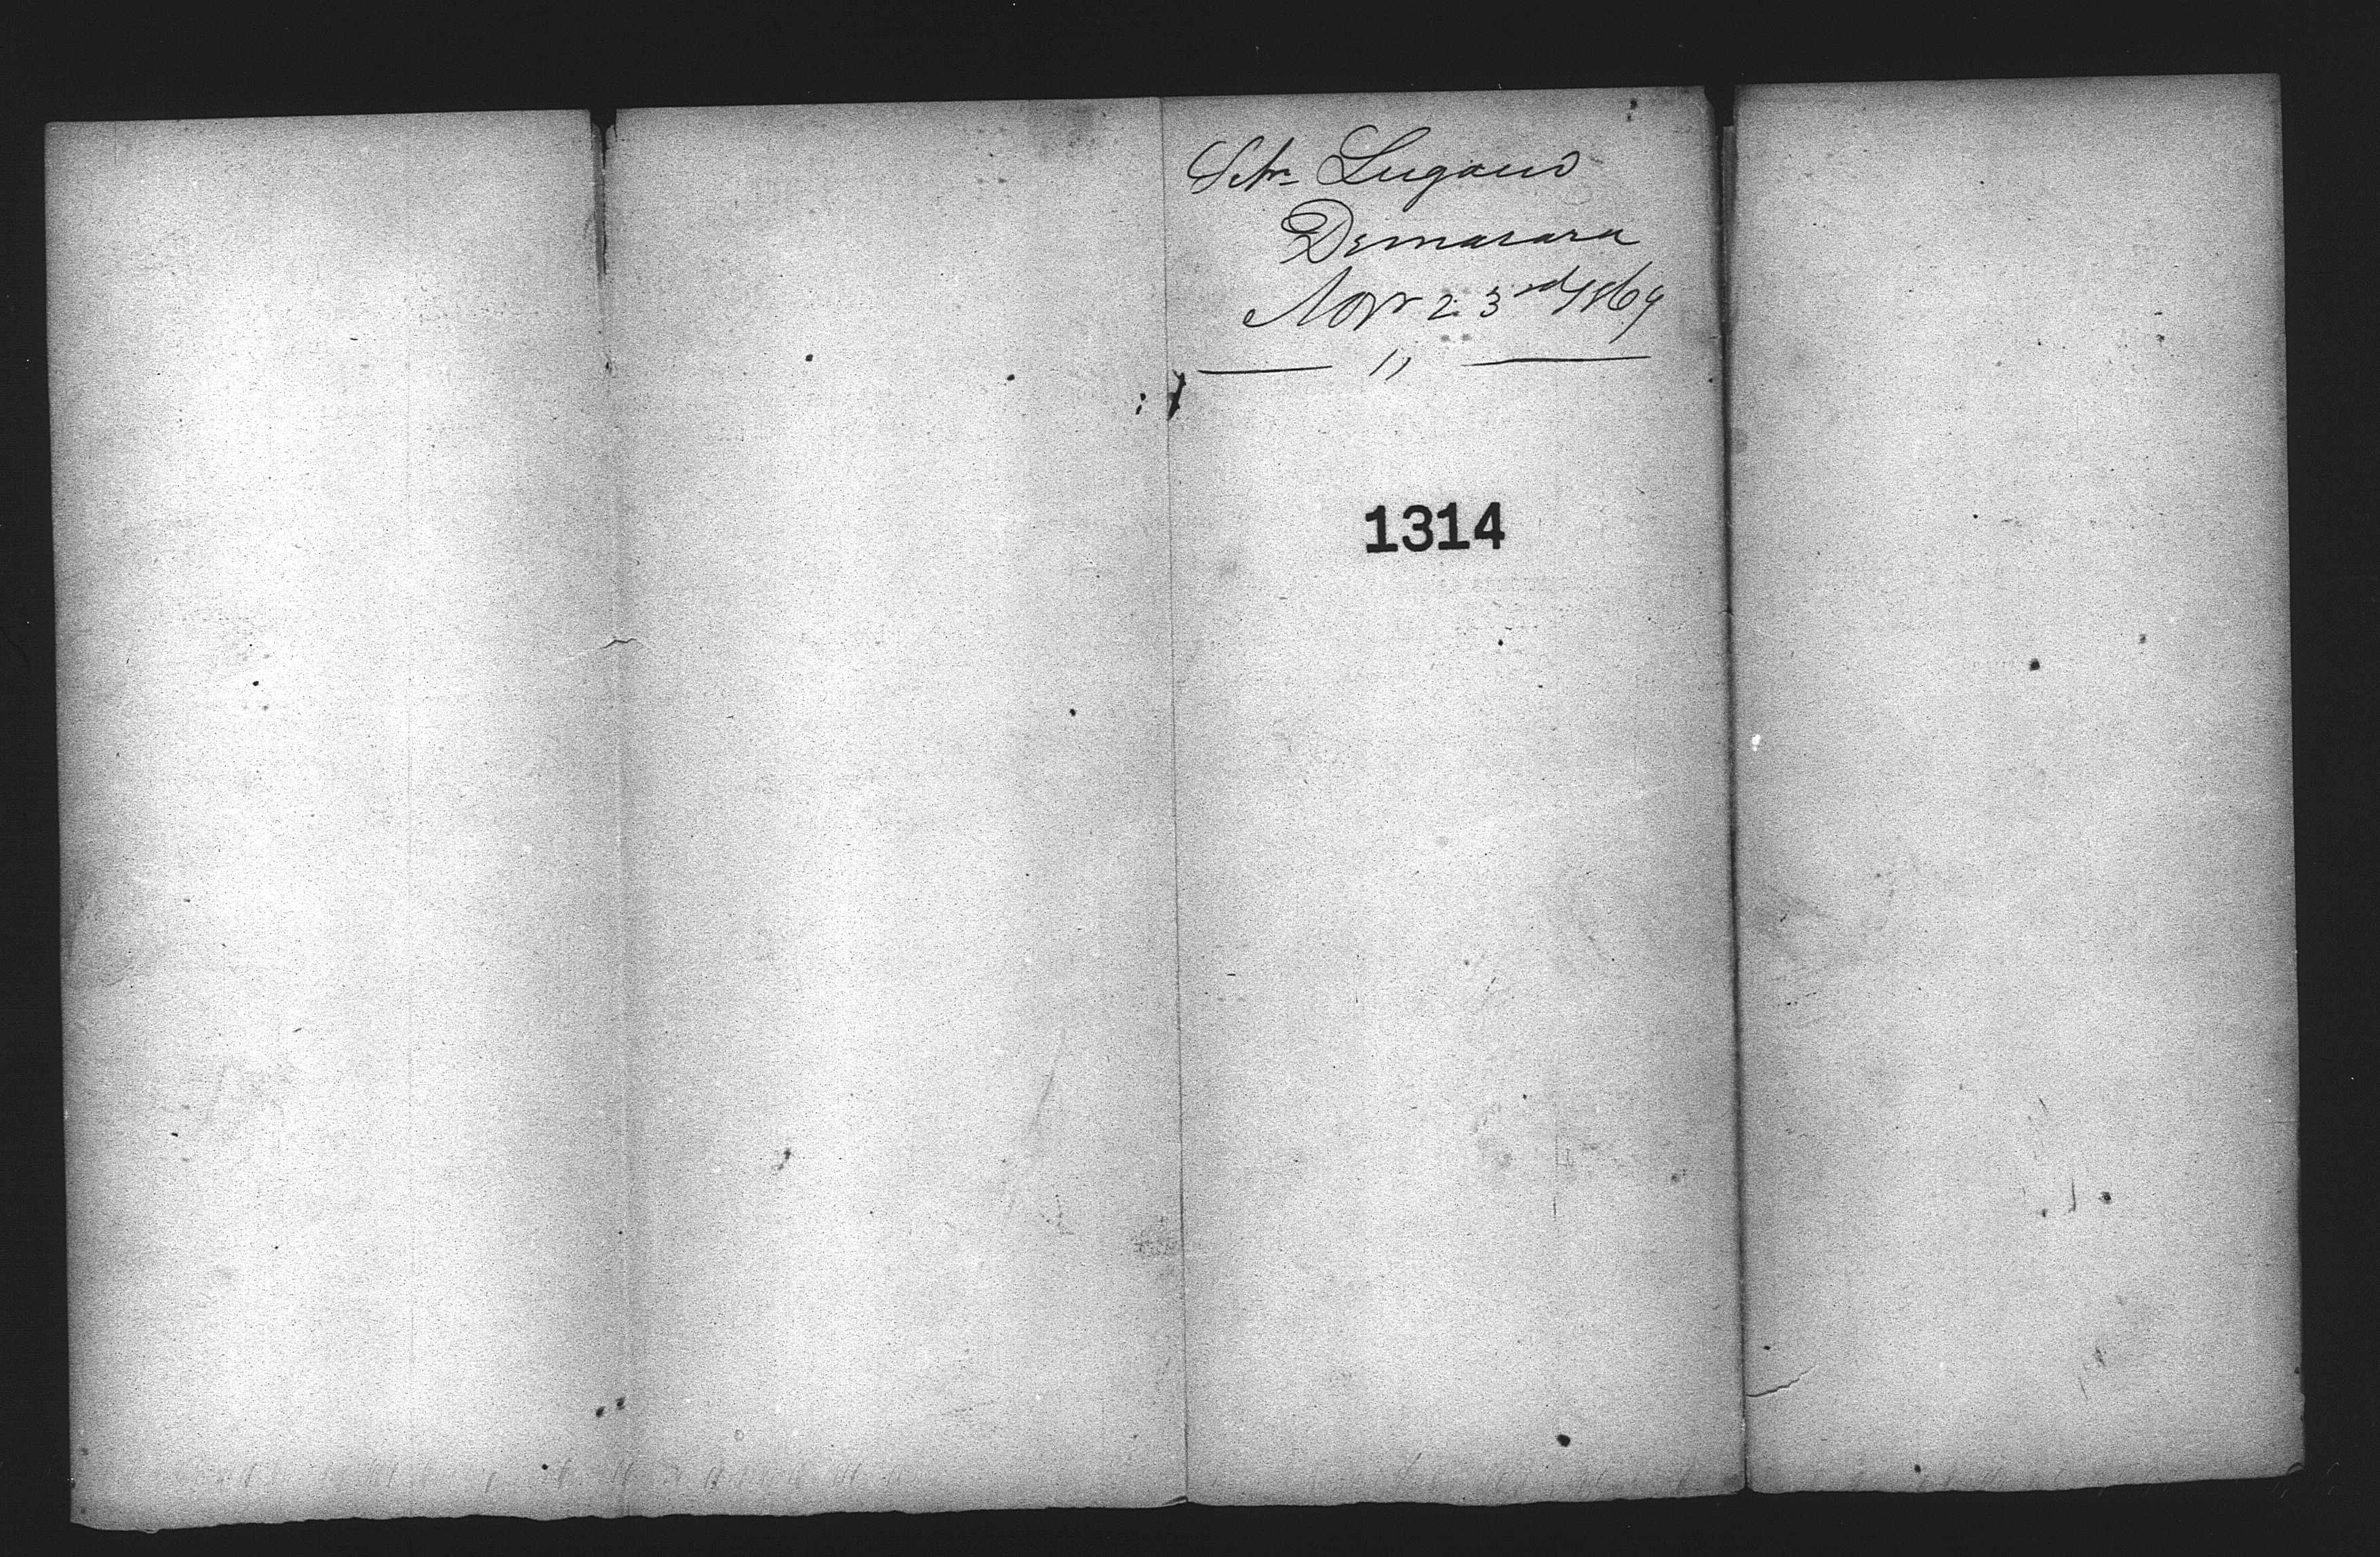 Schr Lugano
Demarara
Novr 23rd 1869
"
1314